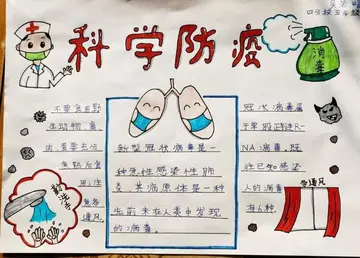 科学防疫
消毒
不要食目野
生动物,禽,
肉,蛋要充分
煮熟后食
用;注
意多
通风
勤洗手
新型冠状病毒是一
种急性感染性肺
炎,其病原体是一种
先前未在人类中发现
的病毒。
冠状病毒属
于单股正链R-
NA病毒,既
往已知感染
人的病毒
有6种。
常通风